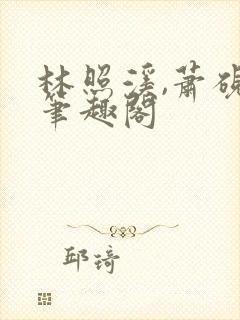 林照溪,萧砚
笔趣阁
邱琦